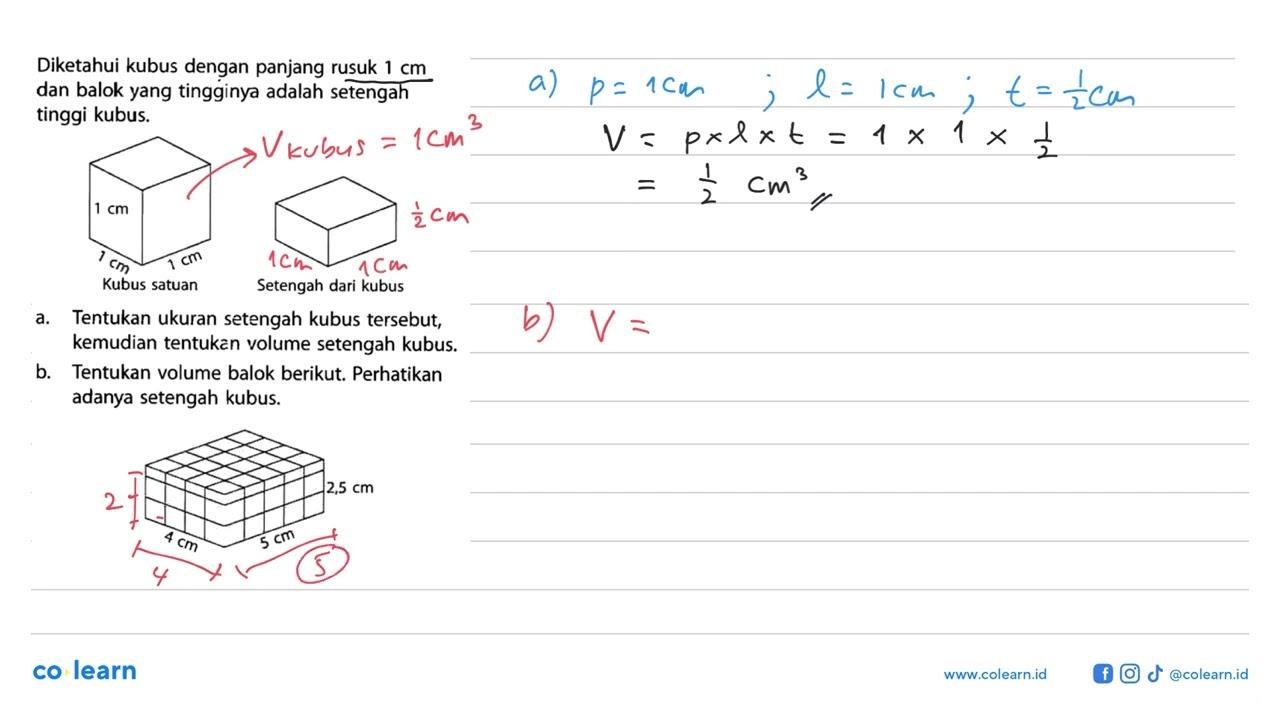 Diketahui kubus dengan panjang rusuk 1 cm
dan balok yang tingginya adalah setengah
tinggi kubus.
V kubus = 1 cm³
1 cm
1 cm
1 cm
Kubus satuan
½ cm
1 cm
1 cm
Setengah dari kubus
a. Tentukan ukuran setengah kubus tersebut,
kemudian tentukan volume setengah kubus.
b. Tentukan volume balok berikut. Perhatikan
adanya setengah kubus.
2
2,5 cm
4 cm
5 cm
4
5
a) p = 1 cm ; l = 1 cm ; t = ½ cm
V = p × l × t = 1 × 1 × ½
= ½ cm³
b) V =
co learn
www.colearn.id
@colearn.id